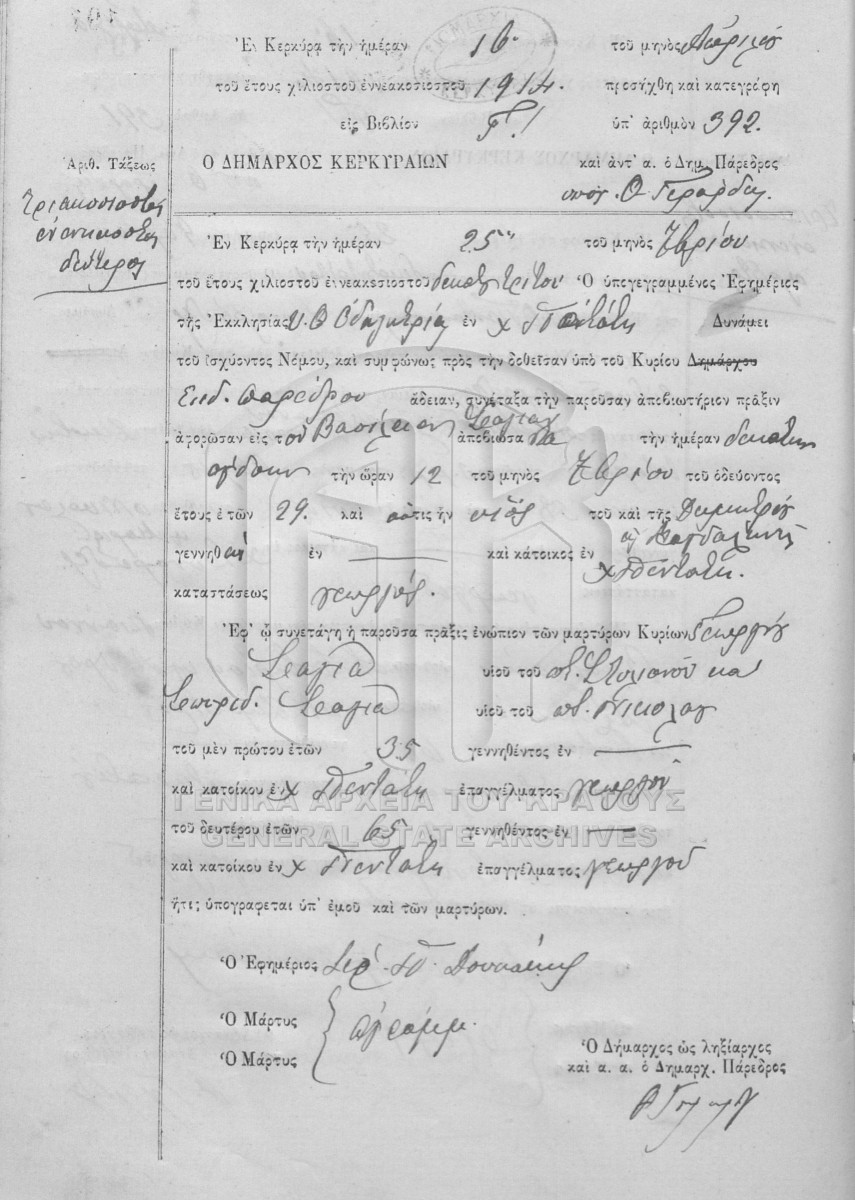 Ἐν Κερκύρᾳ τὴν ἡμέραν 16. τοῦ μηνὸς Ἀπριλίου
τοῦ ἔτους χιλιοστοῦ ἐννεακοσιοστοῦ 1914. προσήχθη καὶ κατεγράφη
εἰς Βιβλίον Γ! ὑπ' ἀριθμὸν 392.
Ἀριθ. Τάξεως
Ο ΔΗΜΑΡΧΟΣ ΚΕΡΚΥΡΑΙΩΝ καὶ ἀντ' α. ὁ Δημ. Πάρεδρος
Τριακοσιοστὸς
ἐνενηκοστὸς
δεύτερος
Ἐν Κερκύρᾳ τὴν ἡμέραν 25 τοῦ μηνὸς 7βρίου
τοῦ ἔτους χιλιοστοῦ ἐννεακοσιοστοῦ δεκάτου τρίτου Ὁ ὑπογεγραμμένος Ἐφημέριος
τῆς Ἐκκλησίας Υ. Θ. Ὁδηγητρία ἐν χ Πεντάτῃ Δυνάμει
τοῦ ἰσχύοντος Νόμου, καὶ συμφώνως πρὸς τὴν δοθεῖσαν ὑπὸ τοῦ Κυρίου Δημάρχου
Εἰδ. Παρέδρου ἄδειαν, συνέταξα τὴν παροῦσαν ἀποβιωτήριον πρᾶξιν
ἀφορῶσαν εἰς τὸν Βασίλειον ἀποβιώσαντα τὴν ἡμέραν δεκάτην
ὀγδόην τὴν ὥραν 12 τοῦ μηνὸς 7βρίου τοῦ ὁδεύοντος
ἔτους ἐτῶν 29. καὶ ὅστις ἦν υἱὸς τοῦ καὶ τῆς Δημητρίου
ϗ Μαγδαληνῆς
γεννηθεὶς ἐν — καὶ κάτοικος ἐν
χ Πεντάτῃ.
καταστάσεως γεωργός.
Ἐφ' ᾧ συνετάγη ἡ παροῦσα πρᾶξις ἐνώπιον τῶν μαρτύρων Κυρίων Γεωργίου
υἱοῦ τοῦ ποτ. Στυλιανοῦ καὶ
Σπυρίδ. υἱοῦ τοῦ ποτ. Νικολάου
τοῦ μὲν πρώτου ἐτῶν 35 γεννηθέντος ἐν —
καὶ κατοίκου ἐν χ Πεντάτῃ ἐπαγγέλματος γεωργοῦ
ΓΕΝΙΚΑ ΑΡΧΕΙΑ ΤΟΥ ΚΡΑΤΟΥΣ
τοῦ δευτέρου ἐτῶν 65 γεννηθέντος ἐν —
GENERAL STATE ARCHIVES
καὶ κατοίκου ἐν χ Πεντάτῃ ἐπαγγέλματος γεωργοῦ
ἥτις ὑπογράφεται ὑπ' ἐμοῦ καὶ τῶν μαρτύρων.
Ὁ Ἐφημέριος Ἱερ.
Ὁ Μάρτυς ἀγράμμ.
Ὁ Μάρτυς
Ὁ Δήμαρχος ὡς ληξίαρχος
καὶ α. α. ὁ Δημαρχ. Πάρεδρος